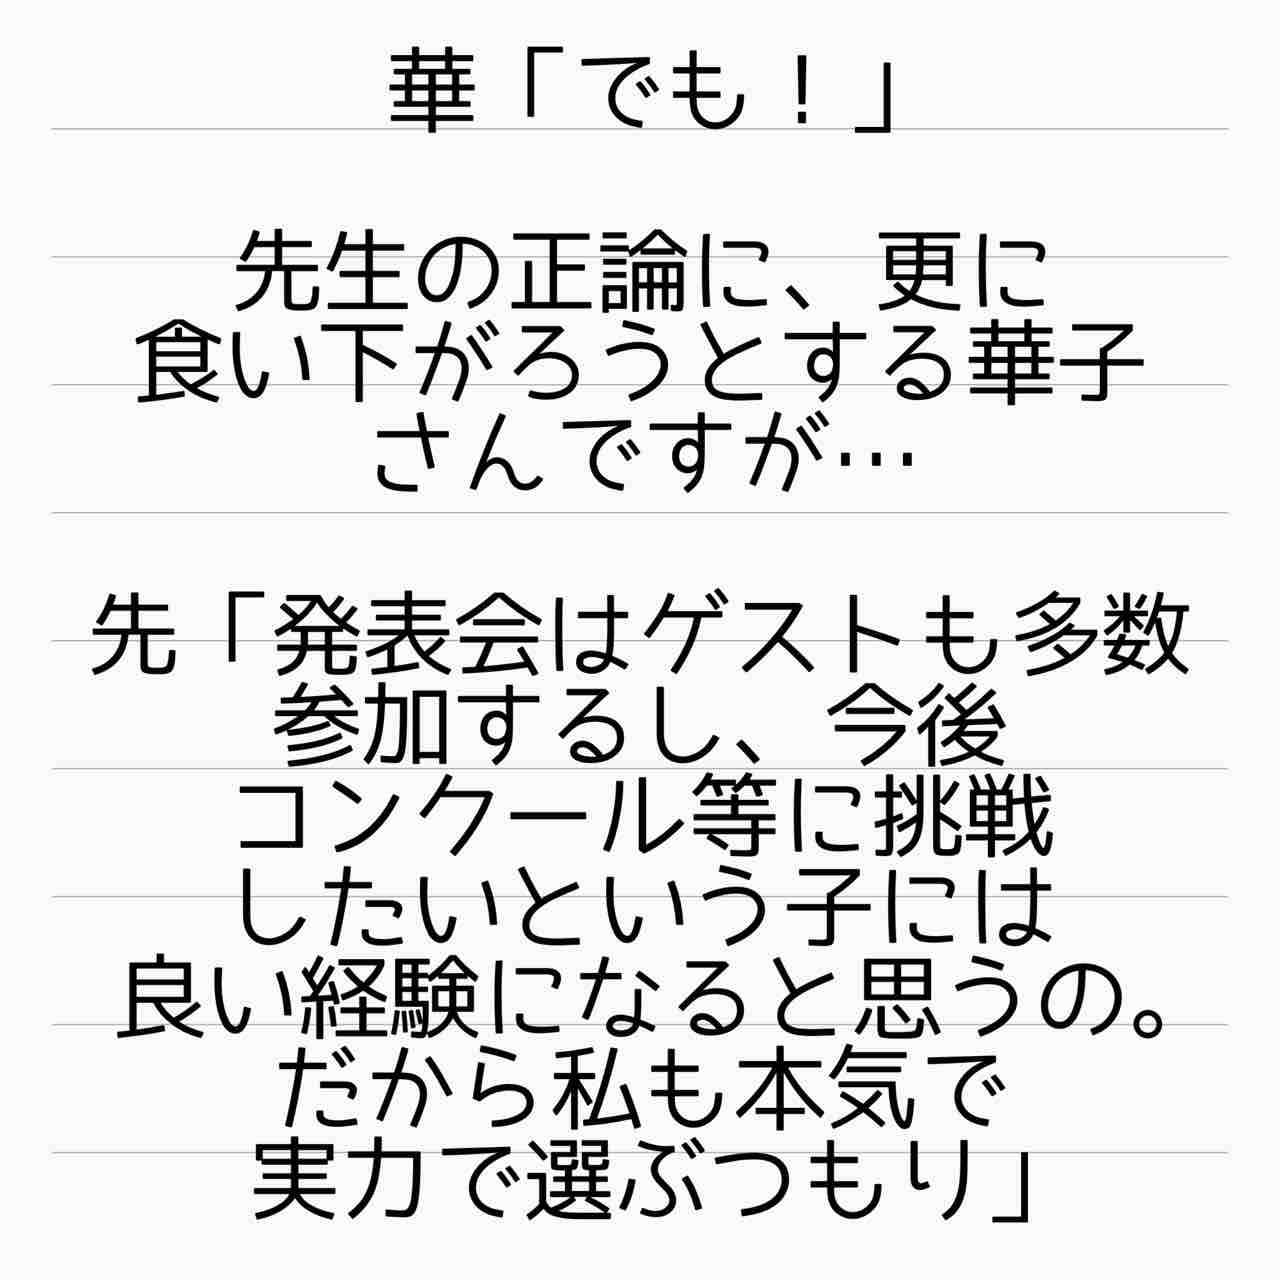 華「でも！」
先生の正論に、更に
食い下がろうとする華子
さんですが…
先「発表会はゲストも多数
参加するし、今後
コンクール等に挑戦
したいという子には
良い経験になると思うの。
だから私も本気で
実力で選ぶつもり」